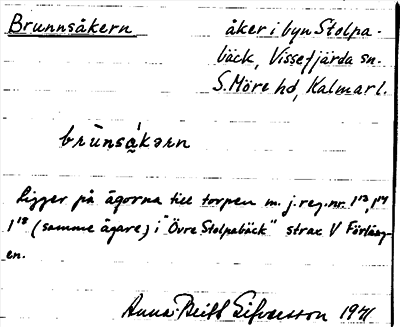 Brunnsåkern åker i byn Stolpa-
bäck, Vissefjärda sn.
S. Möre hd, Kalmar l.
brūnså̀kərn
Ligger på ägorna till torpen m. j. reg. nr. 1¹³, 1¹⁴
1¹⁸ (samme ägare) i "Övre Stolpabäck" strax V Förläng-
en.
Anna-Britt Silvarsson 1941